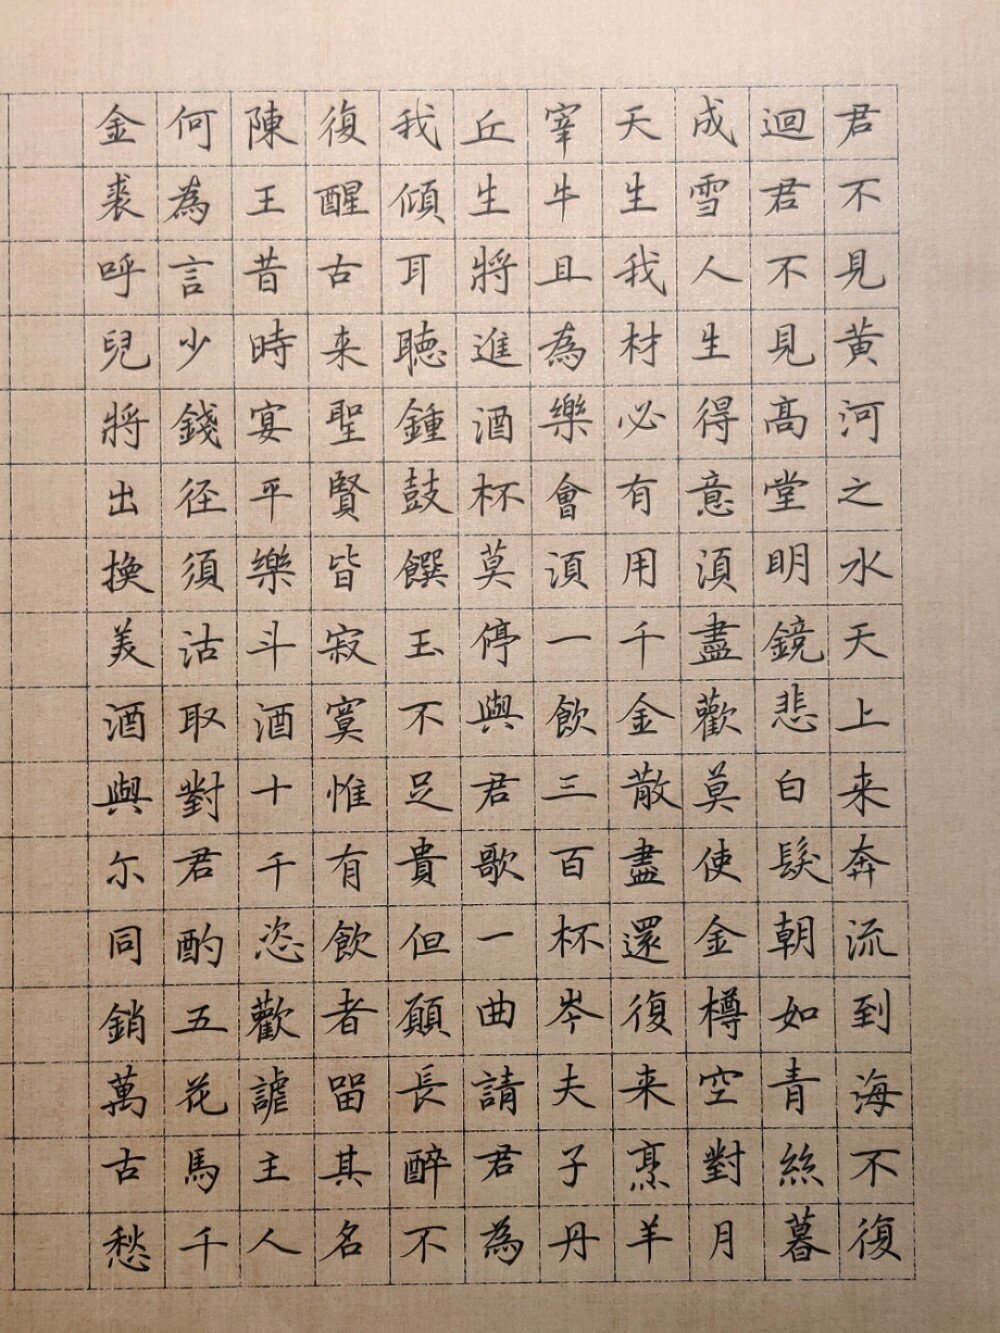 君不見黃河之水天上来奔流到海不復
迴君不見高堂明鏡悲白髮朝如青絲暮
成雪人生得意湏盡歡莫使金樽空對月
天生我材必有用千金散盡還復来烹羊
宰牛且為樂會湏一飲三百杯岑夫子丹
丘生將進酒杯莫停與君歌一曲請君為
我傾耳聽鍾鼓饌玉不足貴但願長醉不
復醒古来聖賢皆寂寞惟有飲者留其名
陳王昔時宴平樂斗酒十千恣歡謔主人
何為言少錢径須沽取對君酌五花馬千
金裘呼兒將出換美酒與尔同銷萬古愁